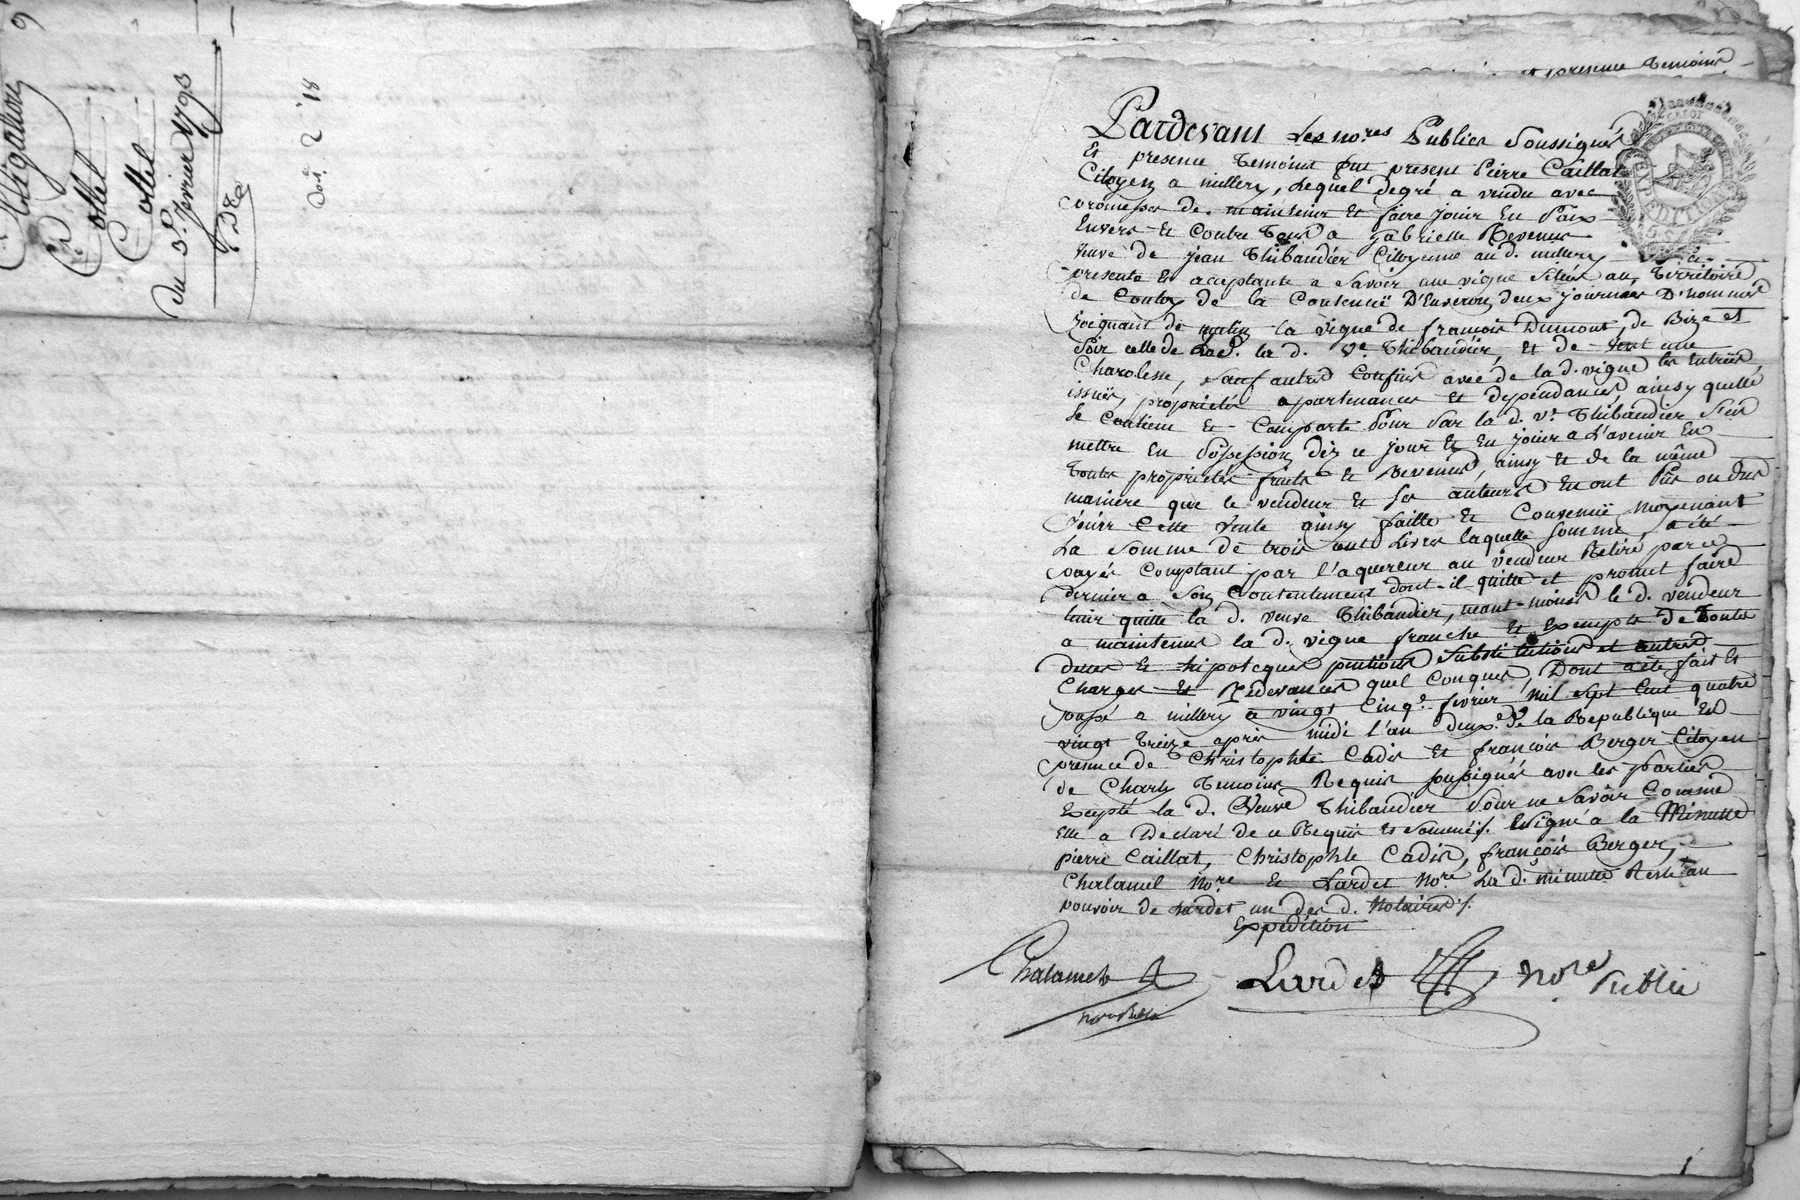 Obligation
Collet
Collet
du 3e. fevrier 1793
Don. 2 " 18
et presence temoins
Pardevant Les nores Publics Soussignés
Et presence temoins fut present Pierre Caillat
Citoyen a millery, Lequel degré a vendu avec
promesse de maintenir Et faire jouir En Paix
Envers Et Contre Tous a Gabrielle Revenus
veuve de jean Thibaudier Citoyenne au d. millery ci
presente Et acceptante a Savoir une vigne Située au Territoire
de Coutoy de la Contenuë D'Environ deux journées D'hommes
joignant de matin la vigne de françois Dumont, de Bize et
Soir celle de la d. ve. Thibaudier, Et de vent une
Charolesse, Sauf autres Confins avec de la d. vigne les Entrées
issues, propriétés apartenances Et dependances, ainsy quelle
Se Contient Et Comporte Pour Par la d. ve. Thibaudier S'en
mettre En Possession dez ce jour Et En jouir a L'avenir En
toutes propriétés fruits Et Revenus, ainsy Et de la même
maniere que le vendeur Et Ses auteurs En ont Pus ou dus
jouir Cette vente ainsy faitte Et Convenuë moyenant
La Somme de trois cent Livres laquelle Somme, a été
payée Comptant par l'aquereur au vendeur Retiré par ce
dernier a Son Contentement dont il quitte et promet faire
tenir quitte la d. veuve Thibaudier, neant-moins le d. vendeur
a maintenus la d. vigne franche Et Exempte de toutes
dettes Et hipoteques pentions Substitutions et autres
Charges Et Redevances quel Conques, Dont acte fait Et
passé a millery a vingt Cinq. fevrier mil Sept Cent quatre
vingt treize après midi l'an deux.e de la Republique En
presence de Christophle Cadis Et françois Berger Citoyen
de Charly temoins Requis Soussignés avec les parties
Excepté la d. Veuve Thibaudier Pour ne Savoir Comme
Elle a Declaré de ce Requis Et Sommée/. Signé a la Minutte
pierre Caillat, Christophle Cadis, françois Berger,
Chalamel Nore Et Lardet Nore. La d. minutte Resté au
pouvoir de Lardet un des d. Notaires/.
Expédition
Chalamel
nore Public
Lardet nore Public